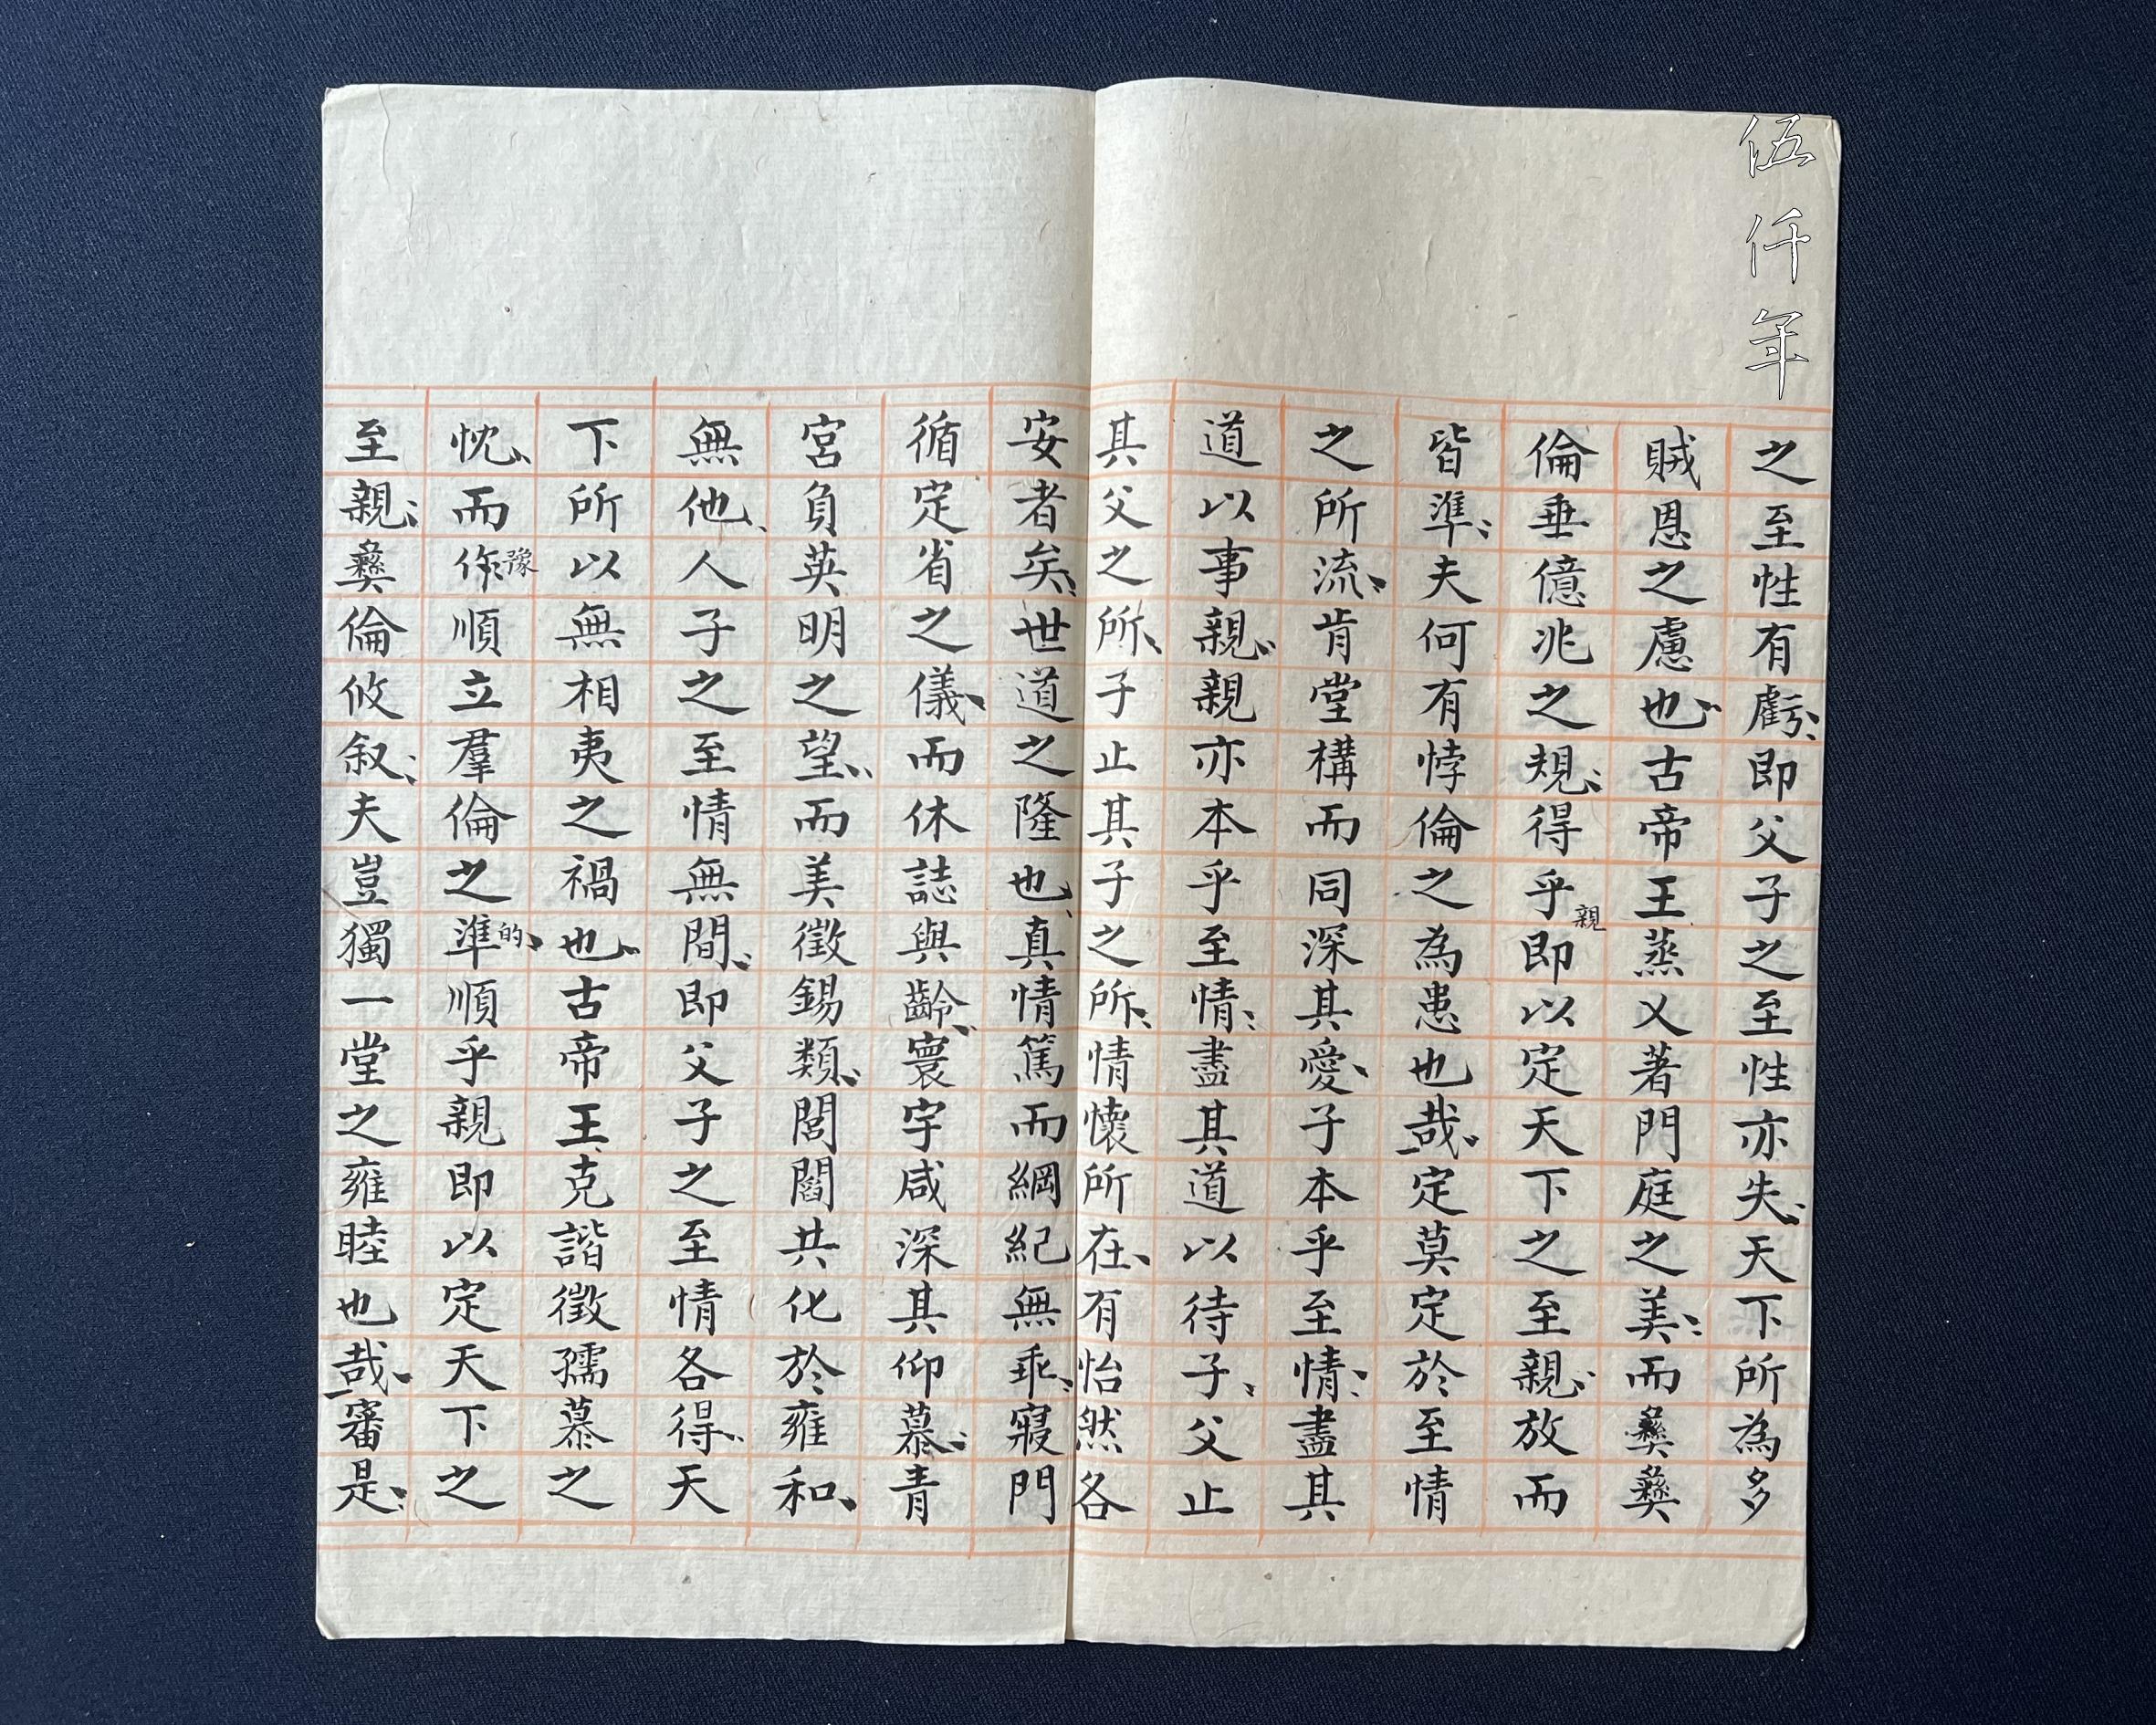 伍仟年
之至性有虧即父子之至性亦失天下所為多
賊恩之慮也古帝王烝乂著門庭之美而彝彝
倫垂億兆之規得乎親即以定天下之至親放而
皆準夫何有悖倫之為患也哉定莫定於至情
之所流肯堂構而同深其愛子本乎至情盡其
道以事親親亦本乎至情盡其道以待子父止
其父之所子止其子之所情懷所在有怡然各
安者矣世道之隆也真情篤而綱紀無乖寢門
循定省之儀而休誌與齡寰宇咸深其仰慕青
宮負英明之望而美徵錫類閭閻共化於雍和
無他人子之至情無間即父子之至情各得天
下所以無相夷之禍也古帝王克諧徵孺慕之
忱而作豫順立羣倫之準的順乎親即以定天下之
至親彝倫攸叙夫豈獨一堂之雍睦也哉審是